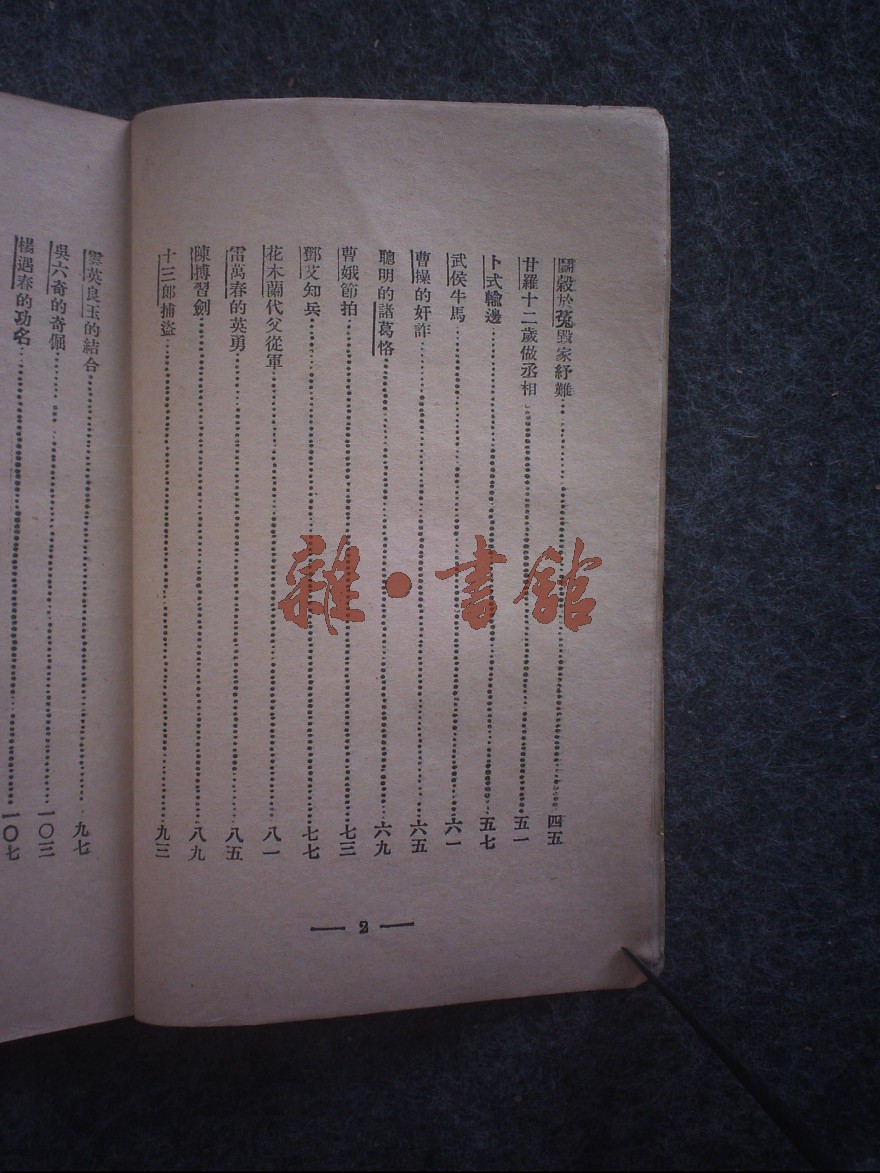 鬬穀於菟毀家紓難 四五
甘羅十二歲做丞相 五一
卜式輸邊 五七
武侯牛馬 六一
曹操的奸詐 六五
聰明的諸葛恪 六九
曹娥節拍 七三
鄧艾知兵 七七
花木蘭代父從軍 八一
雷萬春的英勇 八五
陳搏習劍 八九
十三郎捕盜 九三
— 2 —
雲英良玉的結合 九七
吳六奇的奇倔 一〇三
楊遇春的功名 一〇七
雜·書館